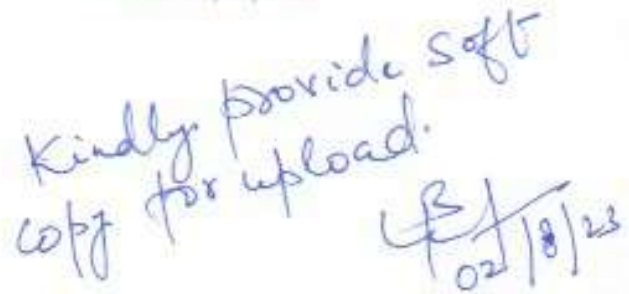 Kindly provide soft
copy for upload.
02/8/23